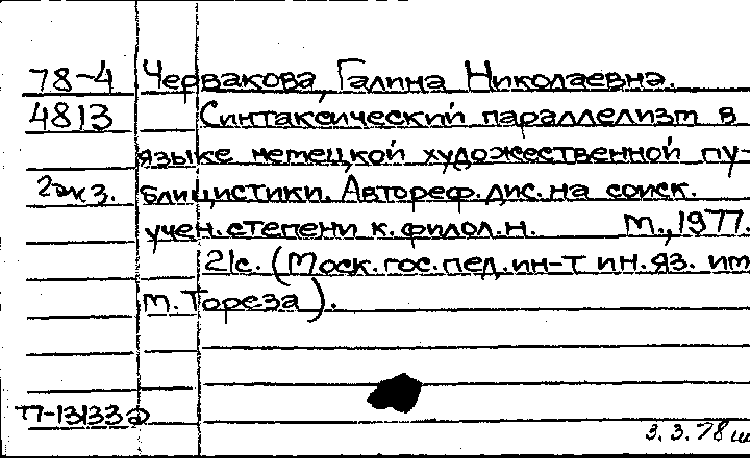 78-4 Червакова, Галина Николаевна.
4813 Синтаксический параллелизм в
языке немецкой художественной пу-
2экз. блицистики. Автореф. дис. на соиск.
учен. степени к. филол. н. М., 1977.
21с. (Моск. гос. пед. ин-т ин. яз. им
М. Тореза).
П-13133
3.3.78